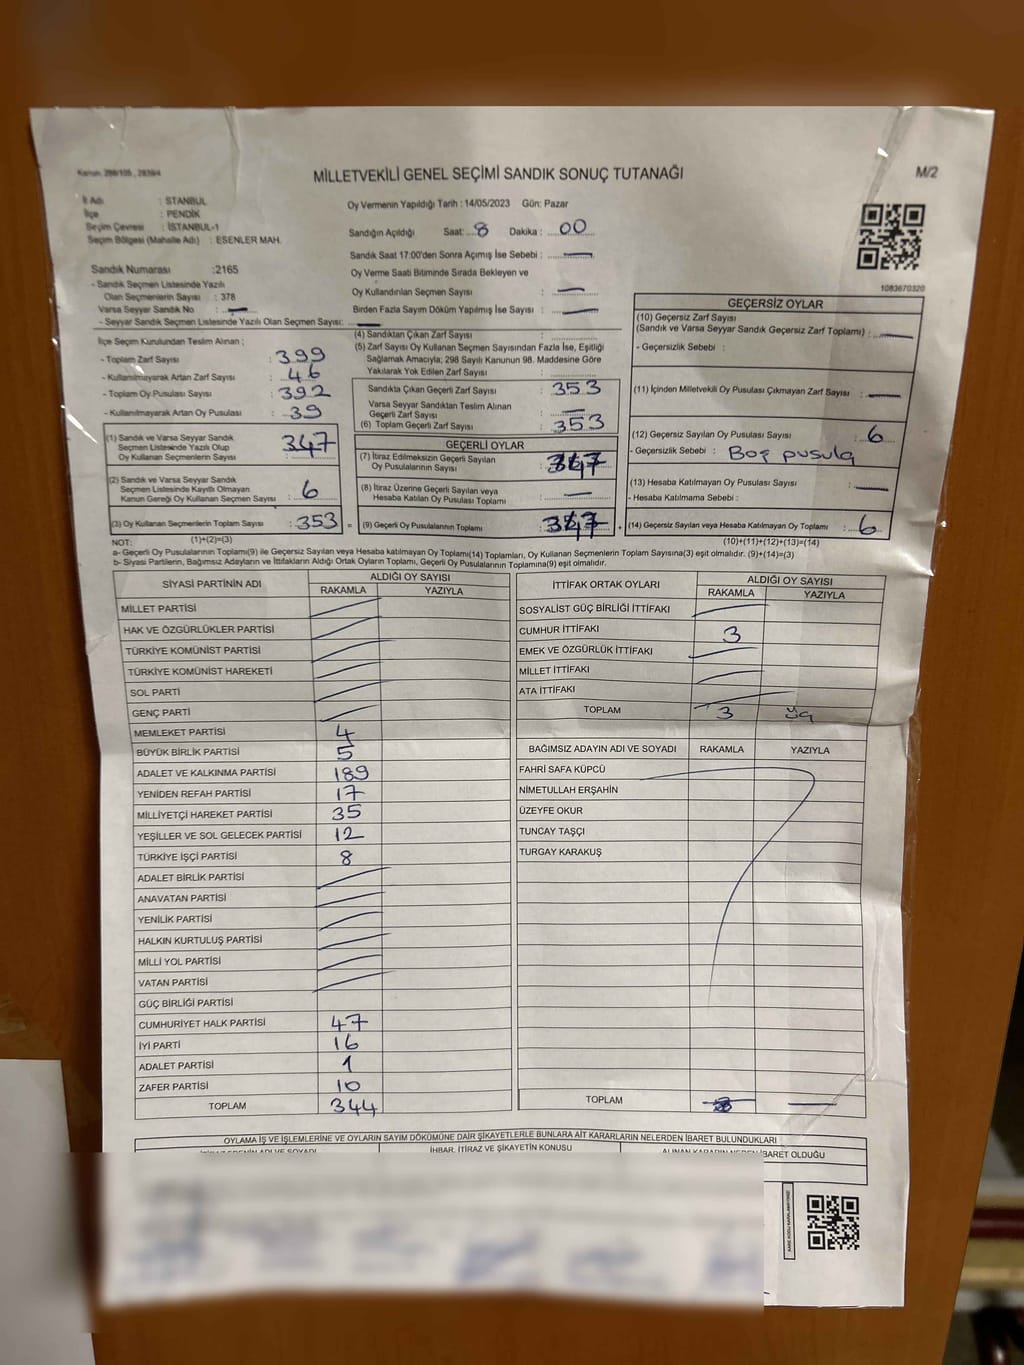 Kanun: 298/105 , 2839/4
MİLLETVEKİLİ GENEL SEÇİMİ SANDIK SONUÇ TUTANAĞI
M/2
İl Adı : STANBUL
İlçe : PENDİK
Seçim Çevresi : İSTANBUL-1
Seçim Bölgesi (Mahalle Adı) : ESENLER MAH.
Sandık Numarası :2165
- Sandık Seçmen Listesinde Yazılı
Olan Seçmenlerin Sayısı : 378
Varsa Seyyar Sandık No : —
- Seyyar Sandık Seçmen Listesinde Yazılı Olan Seçmen Sayısı: —
Oy Vermenin Yapıldığı Tarih : 14/05/2023 Gün: Pazar
Sandığın Açıldığı Saat: 8 Dakika : 00
Sandık Saat 17:00'den Sonra Açımış İse Sebebi : —
Oy Verme Saati Bitiminde Sırada Bekleyen ve
Oy Kullandırılan Seçmen Sayısı : —
Birden Fazla Sayım Döküm Yapılmış İse Sayısı : —
1083670320
İlçe Seçim Kurulundan Teslim Alınan ;
- Toplam Zarf Sayısı : 399
- Kullanılmayarak Artan Zarf Sayısı : 46
- Toplam Oy Pusulası Sayısı : 392
- Kullanılmayarak Artan Oy Pusulası : 39
(1) Sandık ve Varsa Seyyar Sandık
Seçmen Listesinde Yazılı Olup
Oy Kullanan Seçmenlerin Sayısı : 347
(2) Sandık ve Varsa Seyyar Sandık
Seçmen Listesinde Kayıtlı Olmayan
Kanun Gereği Oy Kullanan Seçmen Sayısı : 6
(3) Oy Kullanan Seçmenlerin Toplam Sayısı : 353 =
(4) Sandıktan Çıkan Zarf Sayısı :
(5) Zarf Sayısı Oy Kullanan Seçmen Sayısından Fazla İse, Eşitliği
Sağlamak Amacıyla; 298 Sayılı Kanunun 98. Maddesine Göre
Yakılarak Yok Edilen Zarf Sayısı :
Sandıkta Çıkan Geçerli Zarf Sayısı : 353
Varsa Seyyar Sandıktan Teslim Alınan
Geçerli Zarf Sayısı : —
(6) Toplam Geçerli Zarf Sayısı : 353
GEÇERLİ OYLAR
(7) İtiraz Edilmeksizin Geçerli Sayılan
Oy Pusulalarının Sayısı : 347
(8) İtiraz Üzerine Geçerli Sayılan veya
Hesaba Katılan Oy Pusulası Toplamı : —
(9) Geçerli Oy Pusulalarının Toplamı : 347 +
GEÇERSİZ OYLAR
(10) Geçersiz Zarf Sayısı
(Sandık ve Varsa Seyyar Sandık Geçersiz Zarf Toplamı) : —
- Geçersizlik Sebebi :
(11) İçinden Milletvekili Oy Pusulası Çıkmayan Zarf Sayısı : —
(12) Geçersiz Sayılan Oy Pusulası Sayısı : 6
- Geçersizlik Sebebi : Boş pusula
(13) Hesaba Katılmayan Oy Pusulası Sayısı : —
- Hesaba Katılmama Sebebi :
(14) Geçersiz Sayılan veya Hesaba Katılmayan Oy Toplamı : 6
NOT: (1)+(2)=(3)
(10)+(11)+(12)+(13)=(14)
a- Geçerli Oy Pusulalarının Toplamı(9) ile Geçersiz Sayılan veya Hesaba katılmayan Oy Toplamı(14) Toplamları, Oy Kullanan Seçmenlerin Toplam Sayısına(3) eşit olmalıdır. (9)+(14)=(3)
b- Siyasi Partilerin, Bağımsız Adayların ve İttifakların Aldığı Ortak Oyların Toplamı, Geçerli Oy Pusulalarının Toplamına(9) eşit olmalıdır.
SİYASİ PARTİNİN ADI ALDIĞI OY SAYISI
RAKAMLA YAZIYLA
MİLLET PARTİSİ
HAK VE ÖZGÜRLÜKLER PARTİSİ
TÜRKİYE KOMÜNİST PARTİSİ
TÜRKİYE KOMÜNİST HAREKETİ
SOL PARTİ
GENÇ PARTİ
MEMLEKET PARTİSİ 4
BÜYÜK BİRLİK PARTİSİ 5
ADALET VE KALKINMA PARTİSİ 189
YENİDEN REFAH PARTİSİ 17
MİLLİYETÇİ HAREKET PARTİSİ 35
YEŞİLLER VE SOL GELECEK PARTİSİ 12
TÜRKİYE İŞÇİ PARTİSİ 8
ADALET BİRLİK PARTİSİ
ANAVATAN PARTİSİ
YENİLİK PARTİSİ
HALKIN KURTULUŞ PARTİSİ
MİLLİ YOL PARTİSİ
VATAN PARTİSİ
GÜÇ BİRLİĞİ PARTİSİ
CUMHURİYET HALK PARTİSİ 47
İYİ PARTİ 16
ADALET PARTİSİ 1
ZAFER PARTİSİ 10
TOPLAM 344
İTTİFAK ORTAK OYLARI ALDIĞI OY SAYISI
RAKAMLA YAZIYLA
SOSYALİST GÜÇ BİRLİĞİ İTTİFAKI
CUMHUR İTTİFAKI 3
EMEK VE ÖZGÜRLÜK İTTİFAKI
MİLLET İTTİFAKI
ATA İTTİFAKI
TOPLAM 3
BAĞIMSIZ ADAYIN ADI VE SOYADI RAKAMLA YAZIYLA
FAHRİ SAFA KÜPCÜ
NİMETULLAH ERŞAHİN
ÜZEYFE OKUR
TUNCAY TAŞÇI
TURGAY KARAKUŞ
TOPLAM —
OYLAMA İŞ VE İŞLEMLERİNE VE OYLARIN SAYIM DÖKÜMÜNE DAİR ŞİKAYETLERLE BUNLARA AİT KARARLARIN NELERDEN İBARET BULUNDUKLARI
İHBAR, İTİRAZ VE ŞİKAYETİN KONUSU
ALINAN KARARIN NEDEN İBARET OLDUĞU